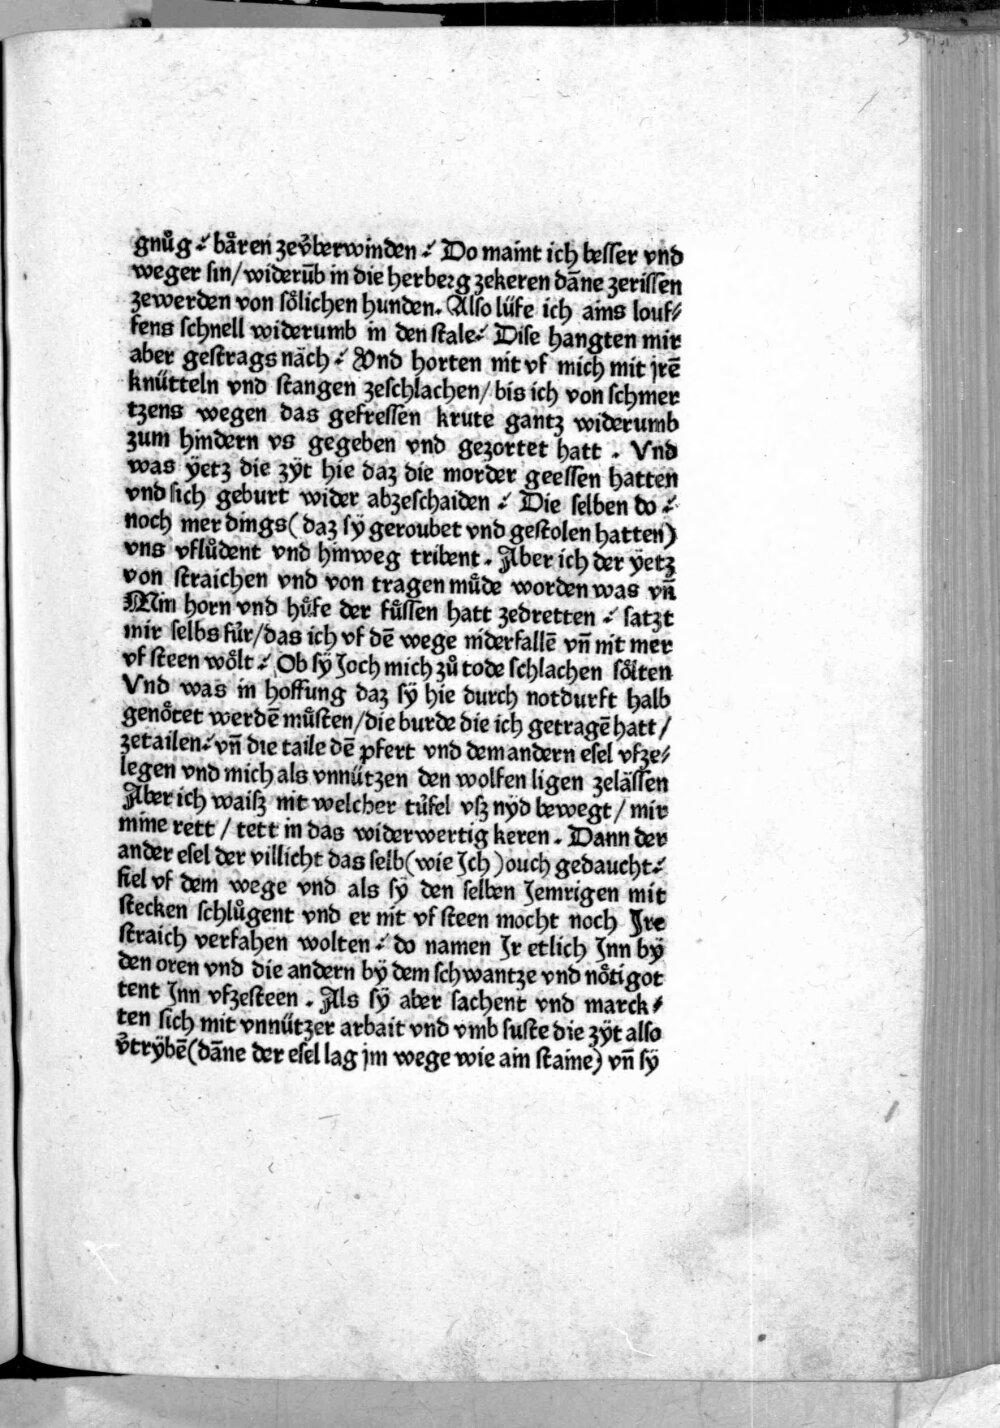 gnuͦg ⸗ baͤren zeuͤberwinden ⸗ Do maint ich besser vnd
weger sin/widerūb in die herberg zekeren dāne zerissen
zewerden von soͤlichen hunden. Also lüfe ich ains louf⸗
fens schnell widerumb in den stale⸗ Dise hangten mir
aber gestrags näch ⸗ Vnd horten nit vf mich mit jrē
knütteln vnd stangen zeschlachen/ bis ich von schmer
tzens wegen das gefressen krute gantz widerumb
zum hindern vs gegeben vnd gezortet hatt . Vnd
was ÿetz die zÿt hie daz die morder geessen hatten
vnd sich geburt wider abzeschaiden ⸗ Die selben do ⸗
noch mer dings(daz sÿ geroubet vnd gestolen hatten)
vns vfluͦdent vnd hinweg tribent . Aber ich der ÿetz
von straichen vnd von tragen muͤde worden was vn̄
Min horn vnd huͤfe der fuͤssen hatt zedretten ⸗ satzt
mir selbs fuͤr/das ich vf dē wege niderfallē vn̄ nit mer
vf steen woͤlt ⸗ Ob sÿ Joch mich zuͦ tode schlachen soͤlten
Vnd was in hoffung daz sÿ hie durch notdurft halb
genoͤtet werdē muͤsten/die burde die ich getragē hatt/
zetailen⸗ vn̄ die taile dē pfert vnd dem andern esel vfze⸗
legen vnd mich als vnnützen den wolfen ligen zelässen
Aber ich waisz nit welcher tuͤfel vsz nÿd bewegt/ mir
mine rett / tett in das widerwertig keren . Dann der
ander esel der villicht das selb(wie Jch)ouch gedaucht⸗
fiel vf dem wege vnd als sÿ den selben Jemrigen mit
stecken schluͦgent vnd er nit vf steen mocht noch Jre
straich verfahen wolten ⸗ do namen Jr etlich Jnn bÿ
den oren vnd die andern bÿ dem schwantze vnd noͤtigot
tent Jnn vfzesteen . Als sÿ aber sachent vnd marck⸗
ten sich mit vnnützer arbait vnd vmb suste die zÿt also
v̉trÿbē(dāne der esel lag jm wege wie ain staine) vn̄ sÿ